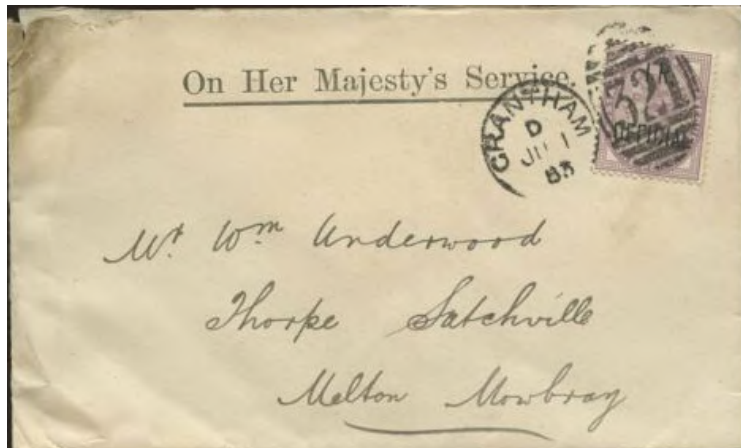 On Her Majesty's Service.
GRANTHAM
D
JU 1
83
321
OFFICIAL
Mr Wm Underwood
Thorpe Satchville
Melton Mowbray